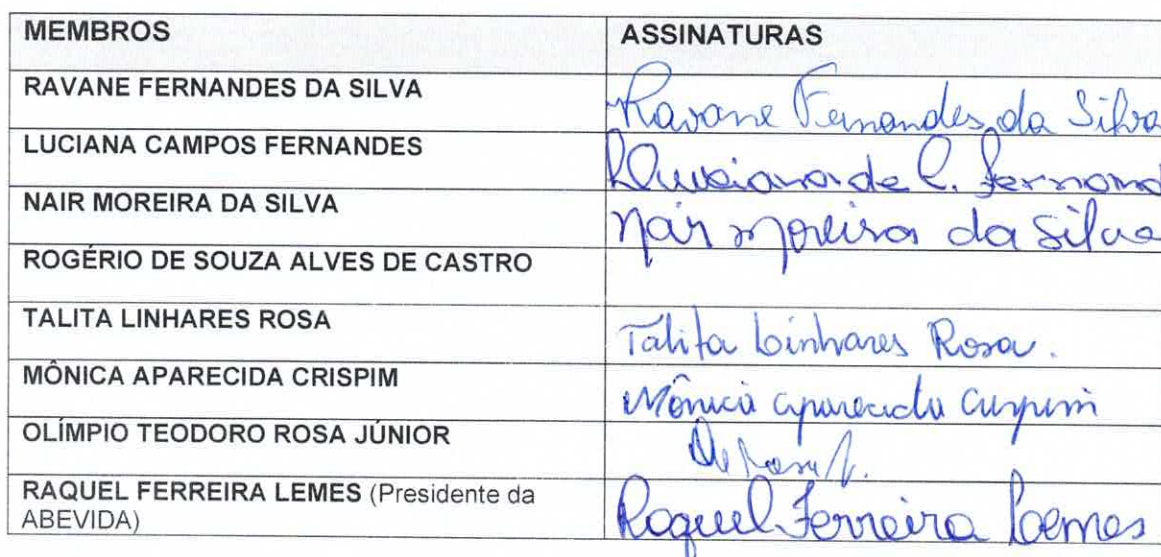 MEMBROS ASSINATURAS
RAVANE FERNANDES DA SILVA Ravane Fernandes da Silva
LUCIANA CAMPOS FERNANDES Luciana de C. Fernand
NAIR MOREIRA DA SILVA Nair Moreira da Silva
ROGÉRIO DE SOUZA ALVES DE CASTRO
TALITA LINHARES ROSA Talita Linhares Rosa.
MÔNICA APARECIDA CRISPIM Mônica Aparecida Crispim
OLÍMPIO TEODORO ROSA JÚNIOR
RAQUEL FERREIRA LEMES (Presidente da
ABEVIDA) Raquel Ferreira Lemes